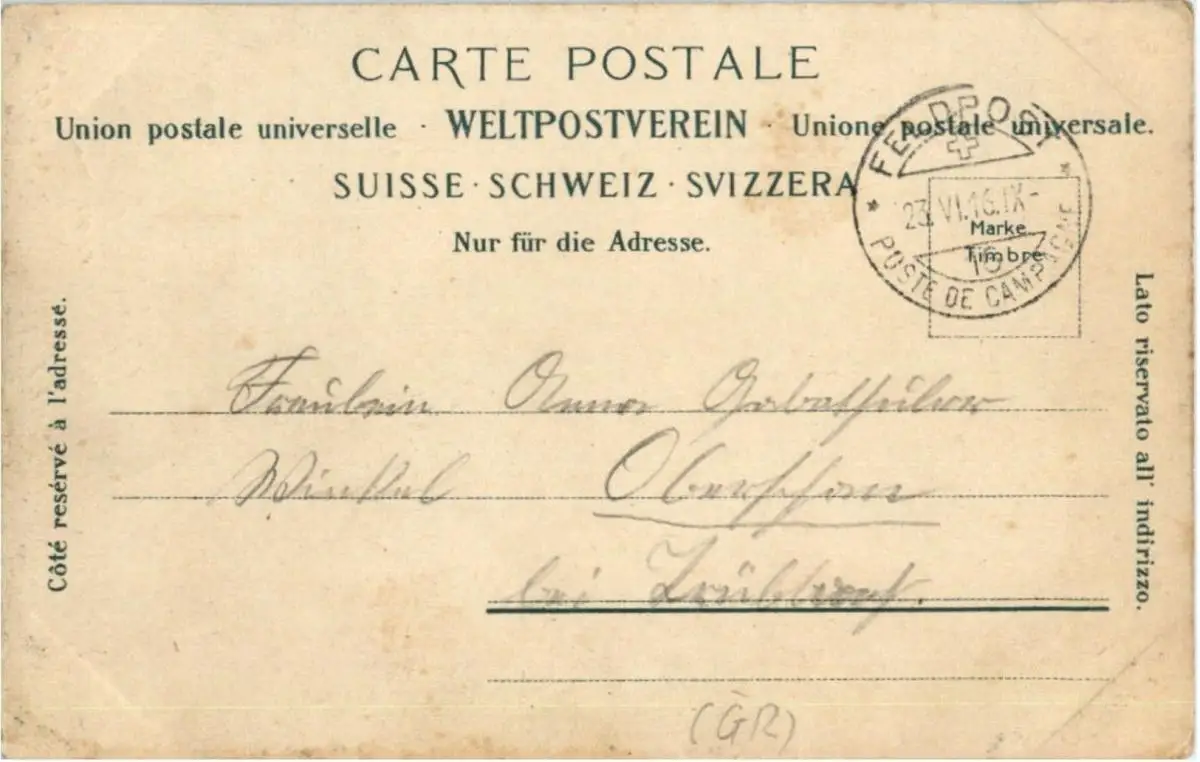 CARTE POSTALE
Union postale universelle · WELTPOSTVEREIN · Unione postale universale.
SUISSE · SCHWEIZ · SVIZZERA
Nur für die Adresse.
FELDPOST
23. VI. 16. IX-
10
POSTE DE CAMPAGNE
Marke
Timbre
Côté resérvé à l'adressé.
Lato riservato all' indirizzo.
Fräulein Anna
Winkel Oberschan
bei Trübbach.
(GR)